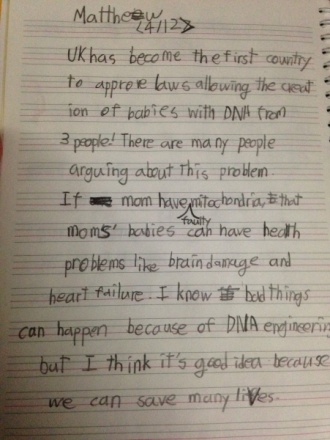 Matthew
UK has become the first country
to approve laws allowing the creat
ion of babies with DNA from
3 people! There are many people
arguing about this problem.
If mom have mitochondria, that
faulty
moms' babies can have health
problems like brain damage and
heart failure. I know bad things
can happen because of DNA engineering
but I think it's good idea because
we can save many lives.